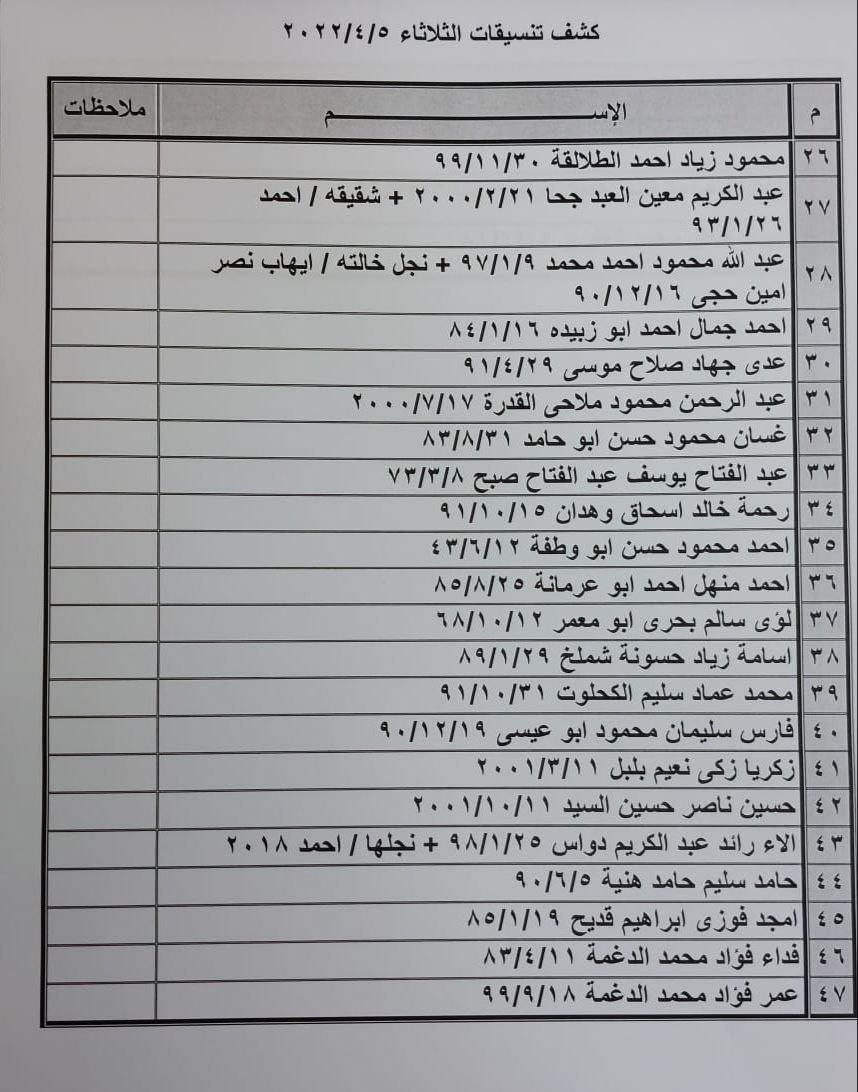 كشف تنسيقات الثلاثاء ٢٠٢٢/٤/٥
م الإســــــــــــم ملاحظات
٢٦ محمود زياد احمد الطلالقة ٩٩/١١/٣٠
٢٧ عبد الكريم معين العبد جحا ٢٠٠٠/٢/٢١ + شقيقه / احمد
٩٣/١/٢٦
٢٨ عبد الله محمود احمد محمد ٩٧/١/٩ + نجل خالته / ايهاب نصر
امين حجى ٩٠/١٢/١٦
٢٩ احمد جمال احمد ابو زبيده ٨٤/١/١٦
٣٠ عدى جهاد صلاح موسى ٩١/٤/٢٩
٣١ عبد الرحمن محمود ملاحى القدرة ٢٠٠٠/٧/١٧
٣٢ غسان محمود حسن ابو حامد ٨٣/٨/٣١
٣٣ عبد الفتاح يوسف عبد الفتاح صبح ٧٣/٣/٨
٣٤ رحمة خالد اسحاق وهدان ٩١/١٠/١٥
٣٥ احمد محمود حسن ابو وطفة ٤٣/٦/١٢
٣٦ احمد منهل احمد ابو عرمانة ٨٥/٨/٢٥
٣٧ لؤى سالم بحرى ابو معمر ٦٨/١٠/١٢
٣٨ اسامة زياد حسونة شملخ ٨٩/١/٢٩
٣٩ محمد عماد سليم الكحلوت ٩١/١٠/٣١
٤٠ فارس سليمان محمود ابو عيسى ٩٠/١٢/١٩
٤١ زكريا زكى نعيم بلبل ٢٠٠١/٣/١١
٤٢ حسين ناصر حسين السيد ٢٠٠١/١٠/١١
٤٣ الاء رائد عبد الكريم دواس ٩٨/١/٢٥ + نجلها / احمد ٢٠١٨
٤٤ حامد سليم حامد هنية ٩٠/٦/٥
٤٥ امجد فوزى ابراهيم قديح ٨٥/١/١٩
٤٦ فداء فؤاد محمد الدغمة ٨٣/٤/١١
٤٧ عمر فؤاد محمد الدغمة ٩٩/٩/١٨